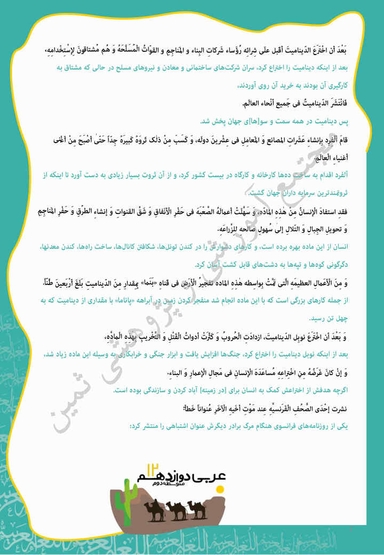 بَعْدَ أن اخْتَرَعَ الدّیناميتَ أقبل عَلَی شِرائِهِ رُؤساء شَرِکاتِ البِناء و المَناجِمِ و القوّاتُ المُسَلَّحَةُ و هُم مُشتاقونَ لِاسْتِخْدامِهِ،
بعد از اینکه دینامیت را اختراع کرد، سران شرکت‌های ساختمانی و معادن و نیروهای مسلح در حالی که مشتاق به
کارگیری آن بودند به خرید آن روی آوردند،
فَانْتَشَرَ الدّیناميتُ في جَمیعِ أنْحاء العالَم.
پس دینامیت در همه سمت و سو(ها)ی جهان پخش شد.
قامَ ألفرِد بِإنشاءِ عَشَراتِ المَصانِعِ وَ المَعامِلِ في عِشرینَ دوله، و کَسَبَ مِنْ ذلک ثَروَةً کَبیرَةً جِدّاً حَتّی أصْبَحَ مِنْ أغْنی
أغنیاءِ العالَم.
آلفرد اقدام به ساخت ده‌ها کارخانه و کارگاه در بیست کشور کرد، و از آن ثروت بسیار زیادی به دست آورد تا اینکه از
ثروتمندترین سرمایه داران جهان گشت.
فقدِ استفادَ الإنسانُ مِنْ هَذِهِ المادَّه، وَ سَهَّلَتْ أعمالَهُ الصَّعْبَةَ في حَفْرِ الأنْفاقِ وَ شَقِّ القَنَواتِ وَ إنشاءِ الطُّرُقِ و حَفْرِ المَناجِمِ
و تَحویلِ الجِبالِ و التِّلالِ إلی سُهولٍ صالحه للزّراعَه.
انسان از این ماده بهره برده است، و کارهای دشوارش را در کندن تونل‌ها، شکافتن کانال‌ها، ساخت راه‌ها، کندن معدنها،
دگرگونی کوه‌ها و تپه‌ها به دشت‌های قابل کشت آسان کرد.
وَ مِنَ الأعْمالِ العظیمَهِ الَّتي تَمَّتْ بِواسطه هَذِهِ المادّه تَفْجیرُ الأرْضِ في قناهِ «بَنَما» بِمِقدارٍ مِنَ الدّیناميتِ بَلَغَ أرْبَعینَ طُنّاً.
از جمله کارهای بزرگی است که با این ماده انجام شد منفجر کردن زمین در آبراهه «پاناما» با مقداری از دینامیت که به
چهل تن رسید.
و بَعْدَ أنِ اخْتَرَعَ نوبِل الدّیناميتَ، ازدادَتِ الحُروبُ وَ کَثُرَتْ أدواتُ القَتْلِ وَ التَّخْریبِ بِهذِه المادِةِ،
بعد از اینکه نوبل دینامیت را اختراع کرد، جنگ‌ها افزایش یافت و ابزار جنگی و خرابکاری به وسیله این ماده زیاد شد،
وَ إنْ کانَ غَرَضُهُ مِنِ اخْتِراعِهِ مُساعَدَةَ الإنسانِ في مَجالِ الإعمارِ و البناء.
اگرچه هدفش از اختراعش کمک به انسان برای (در زمینه) آباد کردن و سازندگی بوده است.
نشرت إحْدَی الصُّحُفِ الفَرَنسیَّهِ عِند مَوْتِ أخیهِ الآخَرِ عُنواناً خَطأً:
یکی از روزنامه‌های فرانسوی هنگام مرگ برادر دیگرش عنوان اشتباهی را منتشر کرد:
عربی دوازدهم
۱۲
متوسطه دوم